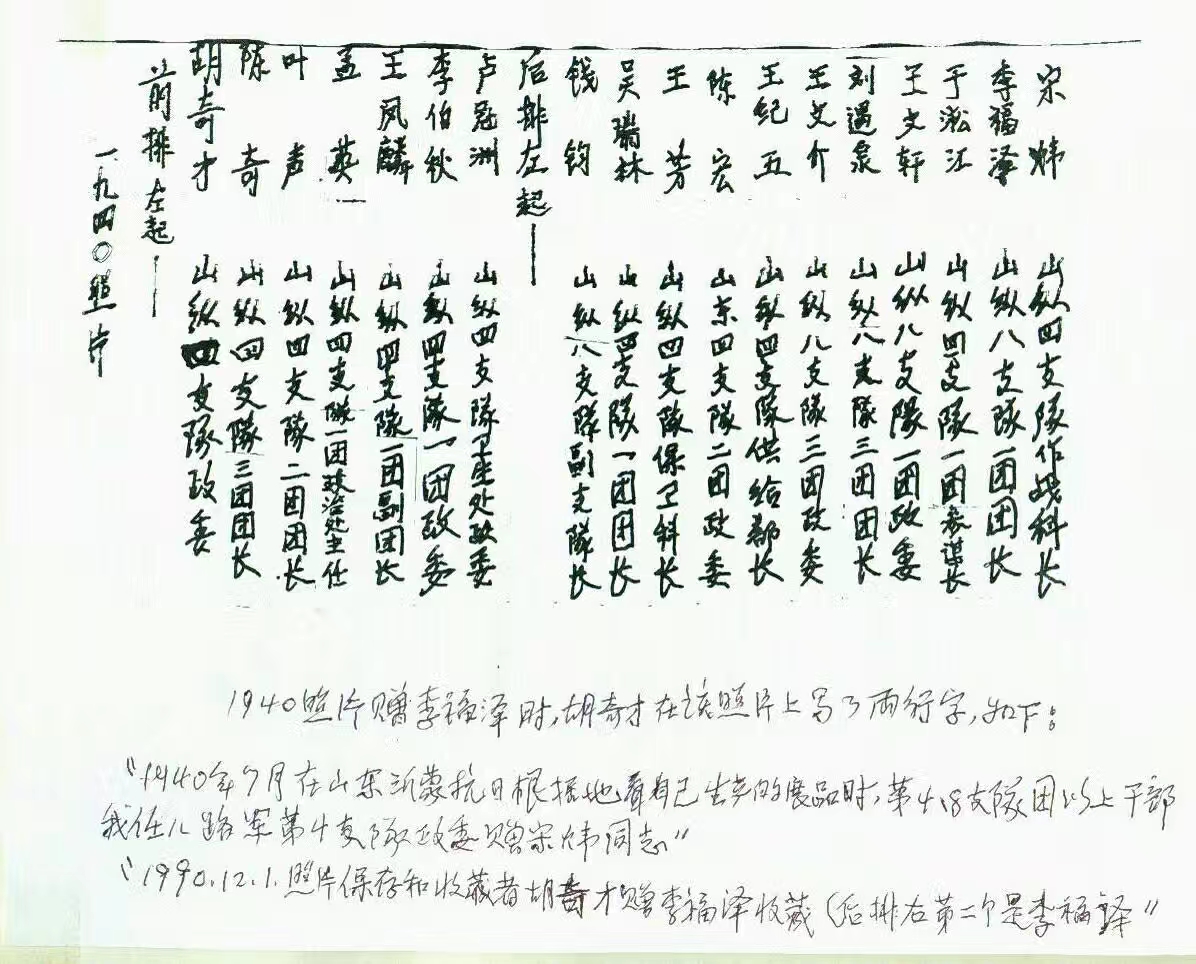 一九四〇照片
前排左起——
胡奇才 山纵四支队政委
陈奇 山纵四支队三团团长
叶声 山纵四支队二团团长
孟英 山纵四支队一团政治处主任
王凤麟 山纵四支队一团副团长
李伯秋 山纵四支队一团政委
卢冠洲 山纵四支队卫生处政委
后排左起——
钱钧 山纵八支队副支队长
吴瑞林 山纵四支队一团团长
王芳 山纵四支队保卫科长
陈宏 山东四支队二团政委
王纪五 山纵四支队供给部长
王文介 山纵八支队三团政委
刘遇泉 山纵八支队三团团长
王文轩 山纵八支队一团政委
于淞江 山纵四支队一团参谋长
李福泽 山纵八支队一团团长
宋炜 山纵四支队作战科长
1940照片赠李福泽时,胡奇才在该照片上写了两行字,如下:
“1940年7月在山东沂蒙抗日根据地看自己生产的展品时,第4.8支队团以上干部
我任八路军第4支队政委赠宋炜同志”
“1990.12.1.照片保存和收藏者胡奇才赠李福泽收藏(后排右第二个是李福泽”